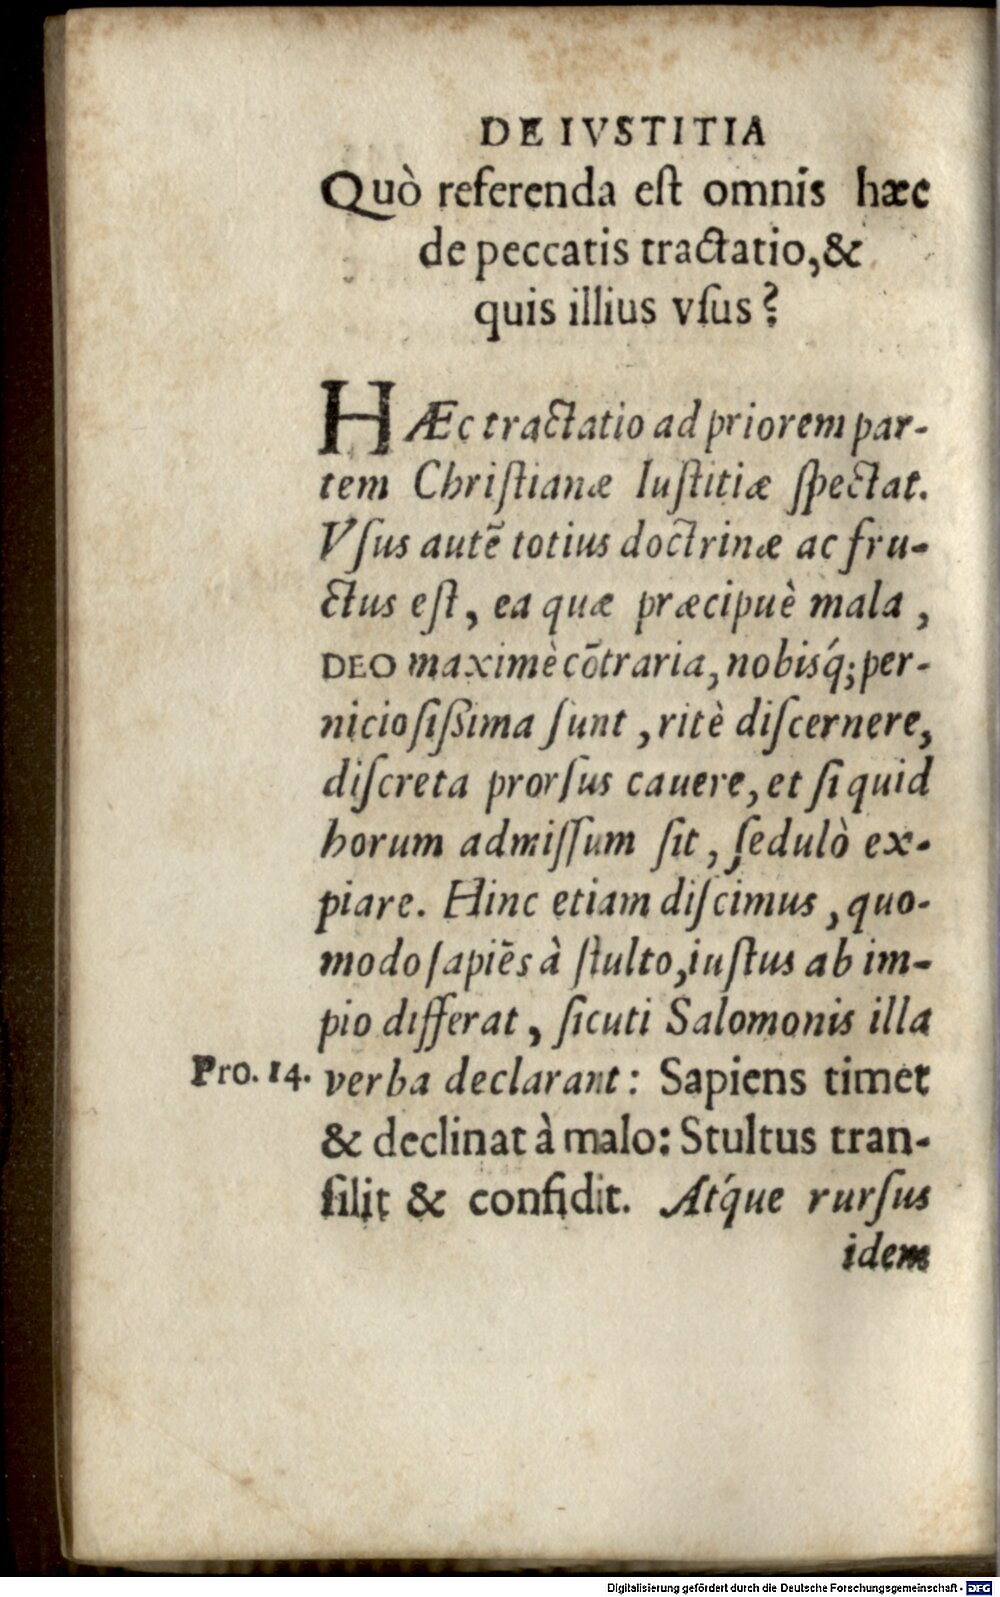 DE IVSTITIA
Quò referenda est omnis hæc
de peccatis tractatio, &
quis illius vſus?
HÆc tractatio ad priorem par-
tem Christianæ Iustitiæ spectat.
Vſus autē totius doctrinæ ac fru-
ctus est, ea quæ præcipuè mala,
DEO maximè cōtraria, nobisq́; per-
niciosißima ſunt, ritè diſcernere,
diſcreta prorſus cauere, et ſi quid
horum admiſſum ſit, ſedulò ex-
piare. Hinc etiam diſcimus, quo-
modo ſapiēs à ſtulto, iuſtus ab im-
pio differat, ſicuti Salomonis illa
Pro. 14. verba declarant: Sapiens timet
& declinat à malo: Stultus tran-
ſilit & confidit. Atq́ue rurſus
idem
Digitalisierung gefördert durch die Deutsche Forschungsgemeinschaft - DFG